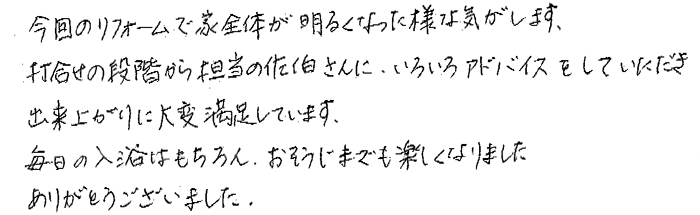 今回のリフォームで家全体が明るくなった様な気がします、
打合せの段階から担当の佐伯さんに、いろいろアドバイスをしていただき
出来上がりに大変満足しています、
毎日の入浴はもちろん、おそうじまでも楽しくなりました
ありがとうございました。